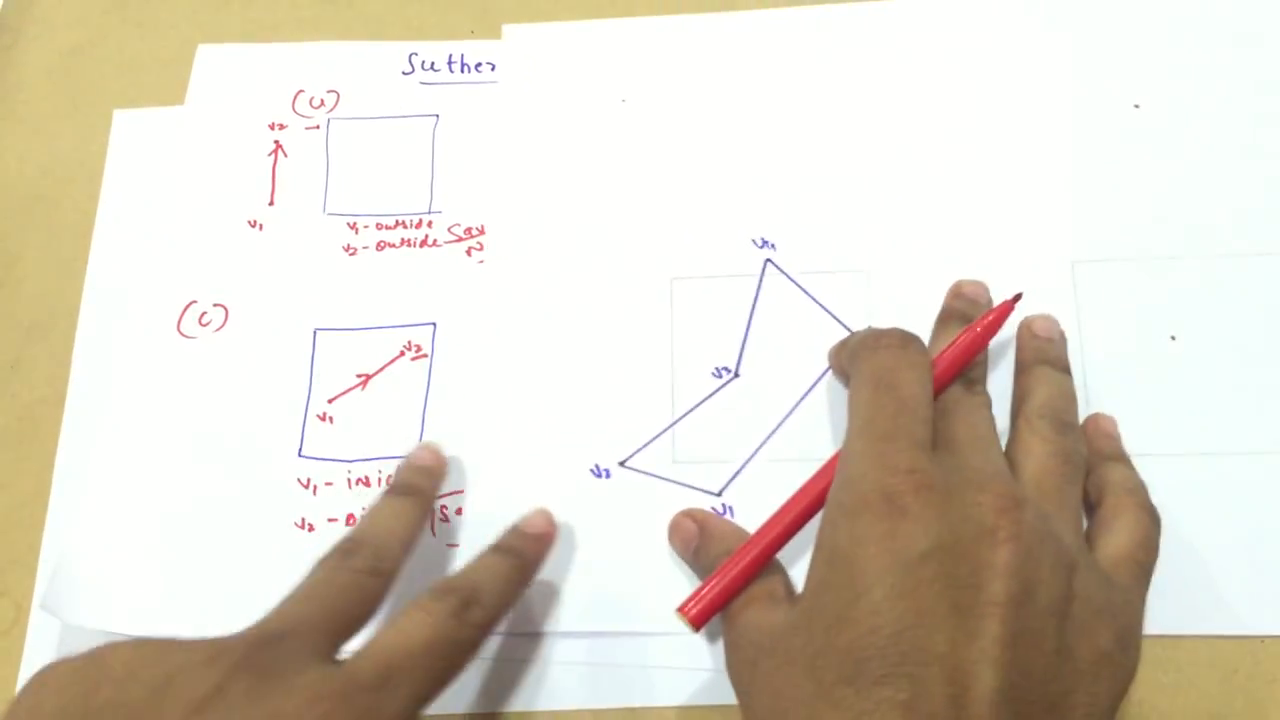 Suther
(a)
V2
V1
V1-outside
V2-outside
(c)
V2
V1
V1-
V2-
V4
V3
V2
V1